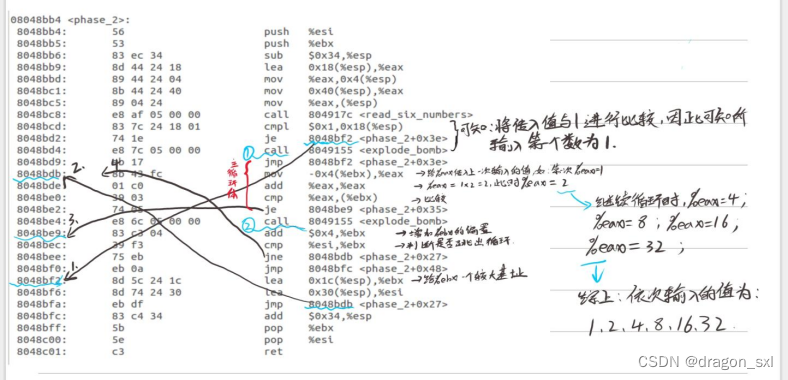 08048bb4 <phase_2>:
8048bb4: 56 push %esi
8048bb5: 53 push %ebx
8048bb6: 83 ec 34 sub $0x34,%esp
8048bb9: 8d 44 24 18 lea 0x18(%esp),%eax
8048bbd: 89 44 24 04 mov %eax,0x4(%esp)
8048bc1: 8b 44 24 40 mov 0x40(%esp),%eax
8048bc5: 89 04 24 mov %eax,(%esp)
8048bc8: e8 af 05 00 00 call 804917c <read_six_numbers>
8048bcd: 83 7c 24 18 01 cmpl $0x1,0x18(%esp) 可知:将传入值与1进行比较,因此可知所
8048bd2: 74 1e je 8048bf2 <phase_2+0x3e> 输入第个数为1.
8048bd4: e8 7c 05 00 00 ① call 8049155 <explode_bomb>
2. eb 17 jmp 8048bf2 <phase_2+0x3e>
8048bdb: 4. 43 fc mov -0x4(%ebx),%eax →给%eax传入上一次输入的值 如:第一次%eax=1
8048bde: 01 c0 add %eax,%eax →%eax=1×2=2,此时%eax=2
8048be0: 39 03 cmp %eax,(%ebx) →比较
8048be2: 74 05 je 8048be9 <phase_2+0x35>
3. 8048be4: e8 6c 05 00 00 ② call 8049155 <explode_bomb>
8048be9: 83 c3 04 add $0x4,%ebx
8048bec: 39 f3 cmp %esi,%ebx →判断是否跳出循环
8048bee: 75 eb jne 8048bdb <phase_2+0x27>
1. 8048bf0: eb 0a jmp 8048bfc <phase_2+0x48>
8048bf2: 8d 5c 24 1c lea 0x1c(%esp),%ebx →给%ebx一个较大地址
8048bf6: 8d 74 24 30 lea 0x30(%esp),%esi
8048bfa: eb df jmp 8048bdb <phase_2+0x27>
8048bfc: 83 c4 34 add $0x34,%esp
8048bff: 5b pop %ebx
8048c00: 5e pop %esi
8048c01: c3 ret
继续循环时,%eax=4;
%eax=8;%eax=16;
%eax=32;
综上:依次输入的值为:
1.2.4.8.16.32.
CSDN @dragon_sxl